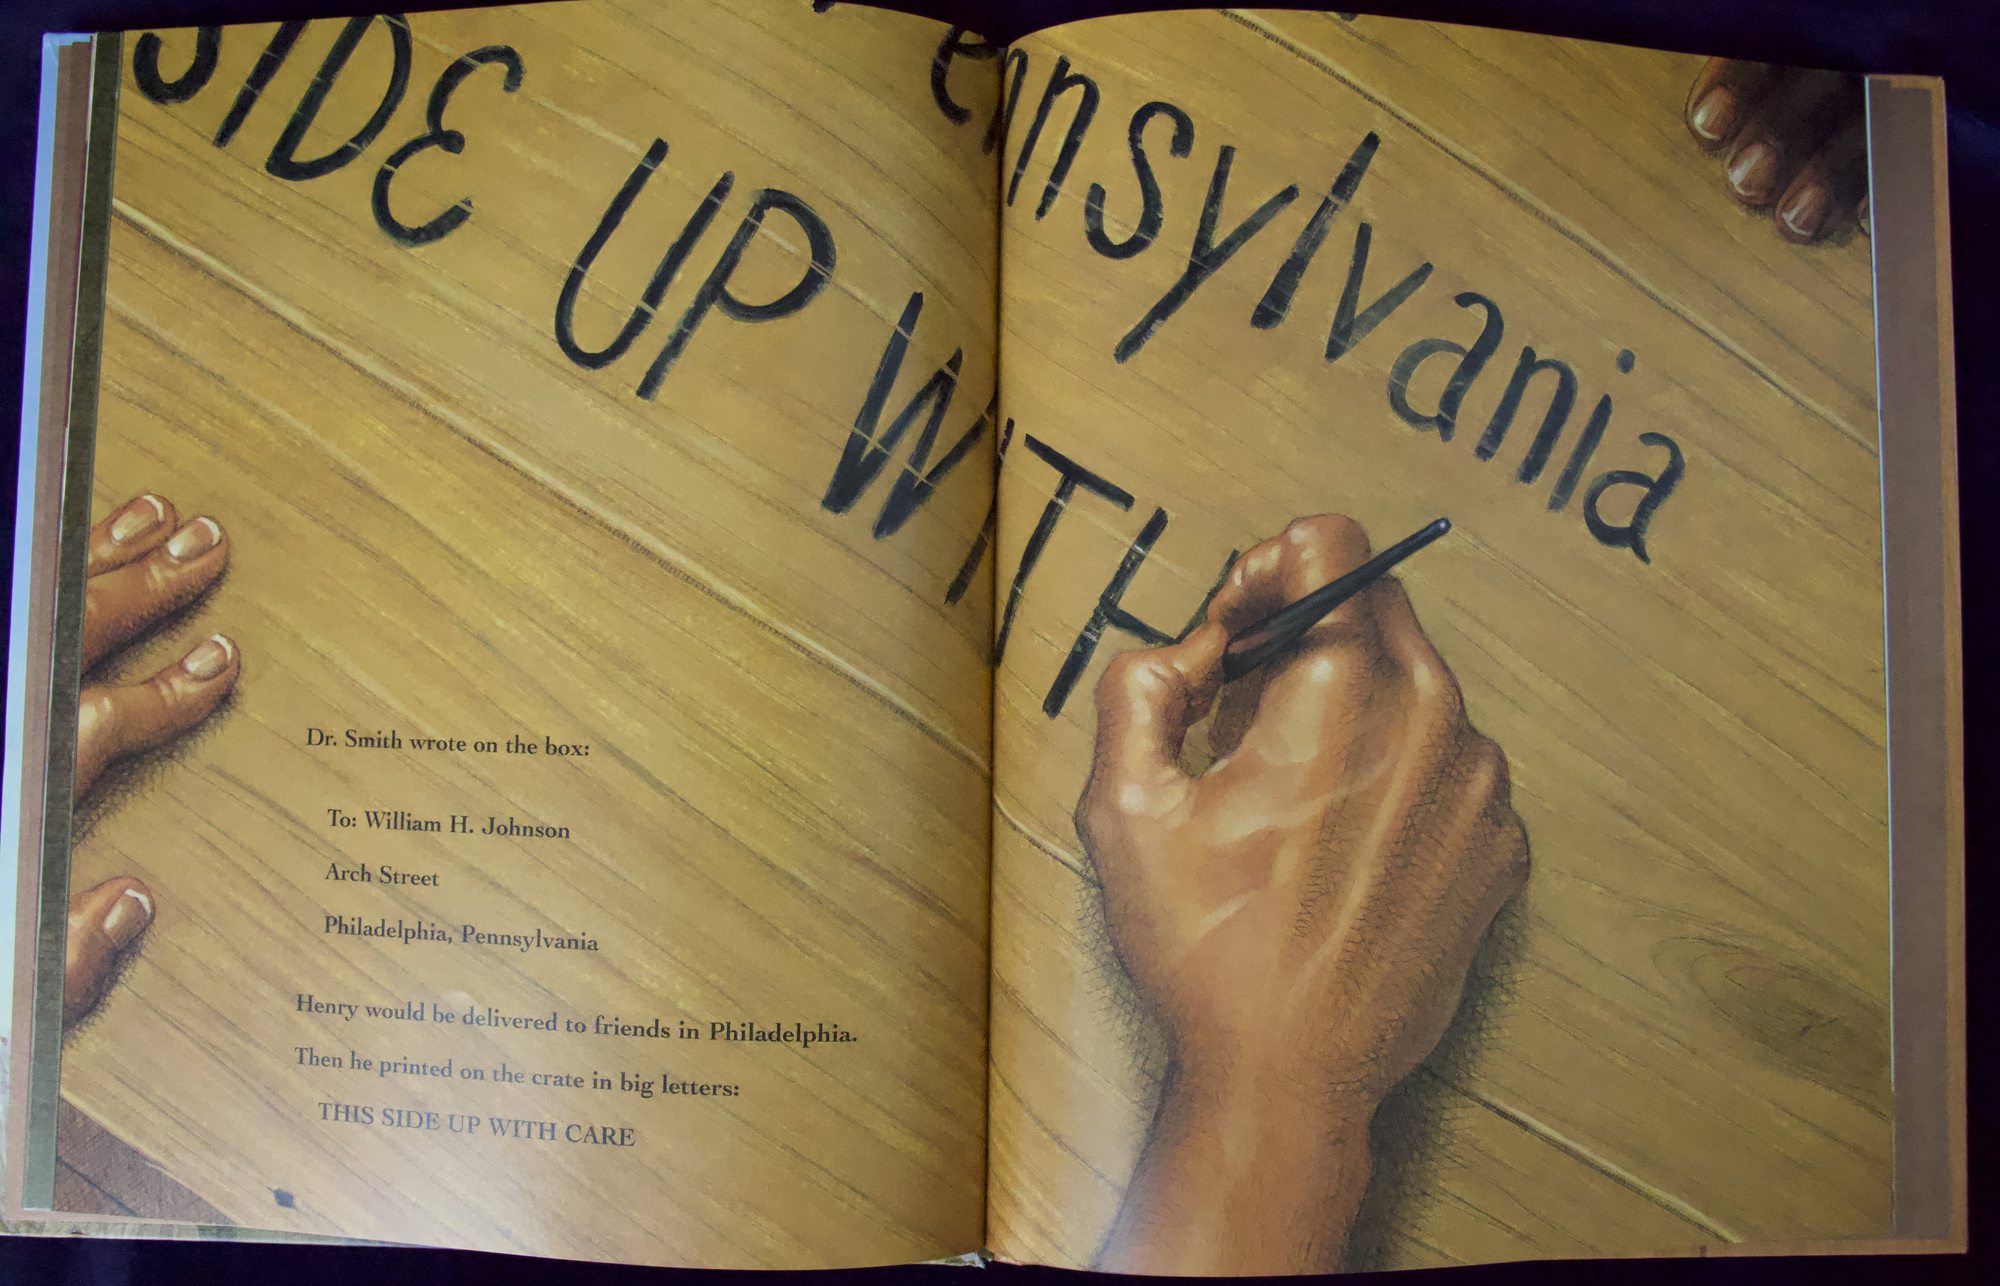 ennsylvania
SIDE UP WITH
Dr. Smith wrote on the box:
To: William H. Johnson
Arch Street
Philadelphia, Pennsylvania
Henry would be delivered to friends in Philadelphia.
Then he printed on the crate in big letters:
THIS SIDE UP WITH CARE